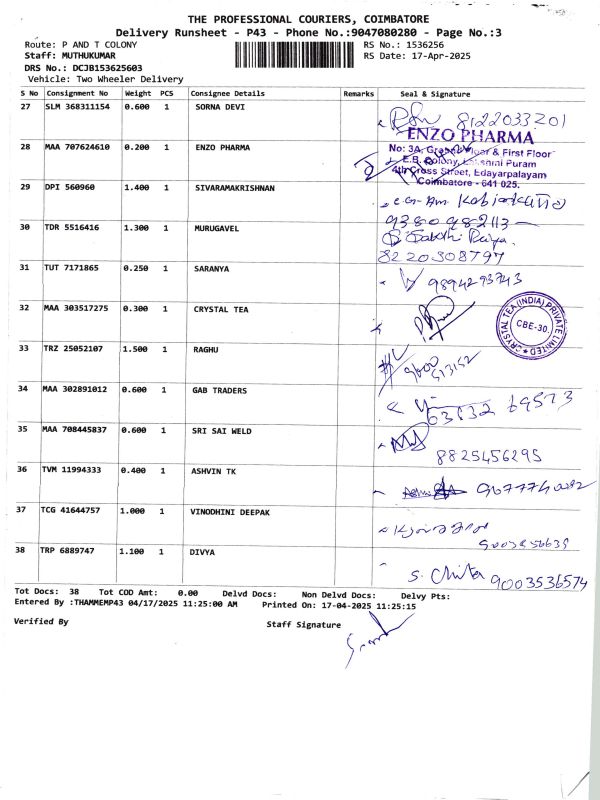 THE PROFESSIONAL COURIERS, COIMBATORE
Delivery Runsheet - P43 - Phone No.:9047080280 - Page No.:3
Route: P AND T COLONY RS No.: 1536256
Staff: MUTHUKUMAR RS Date: 17-Apr-2025
DRS No.: DCJB153625603
Vehicle: Two Wheeler Delivery
S No Consignment No Weight PCS Consignee Details Remarks Seal & Signature
27 SLM 368311154 0.600 1 SORNA DEVI 8122033201
28 MAA 707624610 0.200 1 ENZO PHARMA
ENZO PHARMA
No: 3A, Ground Floor & First Floor
E.B. Colony, Lakshmi Puram
4th Cross Street, Edayarpalayam
Coimbatore - 641 025.
29 DPI 560960 1.400 1 SIVARAMAKRISHNAN
9380982113
30 TDR 5516416 1.300 1 MURUGAVEL
8220308797
31 TUT 7171865 0.250 1 SARANYA 9894293743
32 MAA 303517275 0.300 1 CRYSTAL TEA
CRYSTAL TEA (INDIA) PRIVATE LIMITED
CBE-30.
33 TRZ 25052107 1.500 1 RAGHU
34 MAA 302891012 0.600 1 GAB TRADERS 63832 69573
35 MAA 708445837 0.600 1 SRI SAI WELD
8825456295
36 TVM 11994333 0.400 1 ASHVIN TK
37 TCG 41644757 1.000 1 VINODHINI DEEPAK
38 TRP 6889747 1.100 1 DIVYA
S. Chitra 9003536574
Tot Docs: 38 Tot COD Amt: 0.00 Delvd Docs: Non Delvd Docs: Delvy Pts:
Entered By :THAMMEMP43 04/17/2025 11:25:00 AM Printed On: 17-04-2025 11:25:15
Verified By Staff Signature